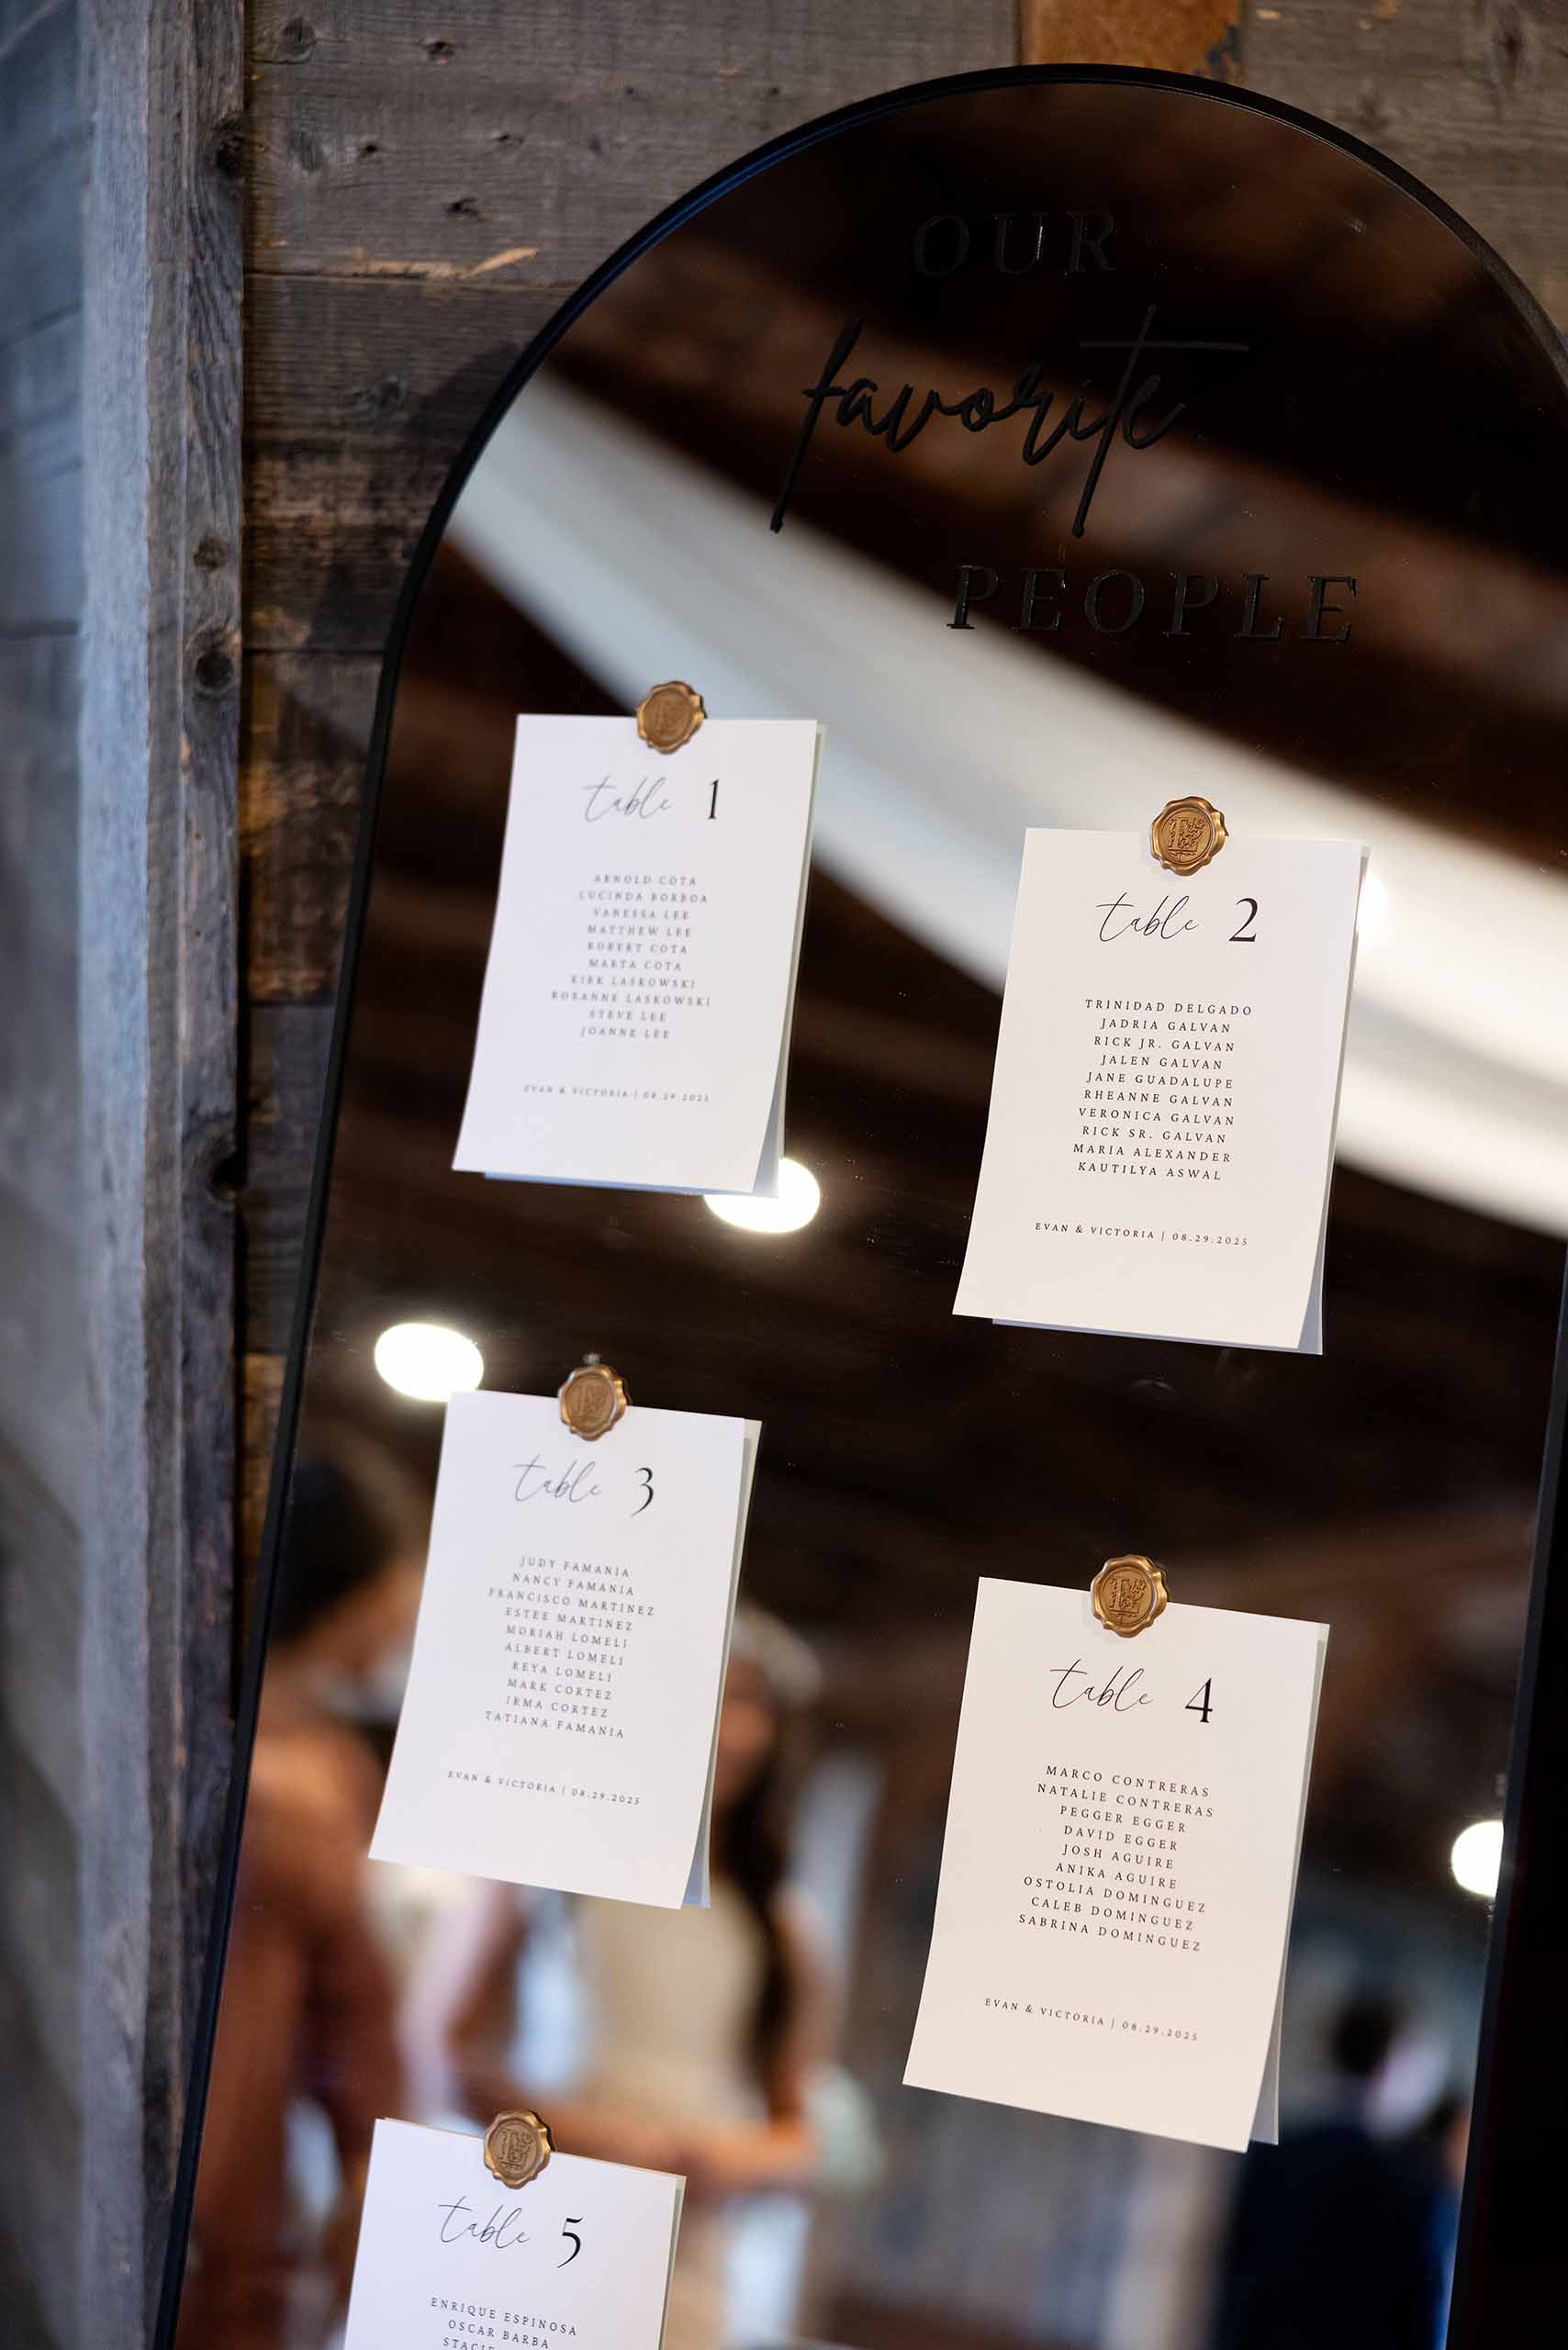 OUR
favorite
PEOPLE
table 1
ARNOLD COTA
LUCINDA BORBOA
VANESSA LEE
MATTHEW LEE
ROBERT COTA
MARTA COTA
KIRK LASKOWSKI
ROXANNE LASKOWSKI
STEVE LEE
JOANNE LEE
EVAN & VICTORIA | 08.29.2025
table 2
TRINIDAD DELGADO
JADRIA GALVAN
RICK JR. GALVAN
JALEN GALVAN
JANE GUADALUPE
RHEANNE GALVAN
VERONICA GALVAN
RICK SR. GALVAN
MARIA ALEXANDER
KAUTILYA ASWAL
EVAN & VICTORIA | 08.29.2025
table 3
JUDY FAMANIA
NANCY FAMANIA
FRANCISCO MARTINEZ
ESTEE MARTINEZ
MORIAH LOMELI
ALBERT LOMELI
REYA LOMELI
MARK CORTEZ
IRMA CORTEZ
TATIANA FAMANIA
EVAN & VICTORIA | 08.29.2025
table 4
MARCO CONTRERAS
NATALIE CONTRERAS
PEGGER EGGER
DAVID EGGER
JOSH AGUIRE
ANIKA AGUIRE
OSTOLIA DOMINGUEZ
CALEB DOMINGUEZ
SABRINA DOMINGUEZ
EVAN & VICTORIA | 08.29.2025
table 5
ENRIQUE ESPINOSA
OSCAR BARBA